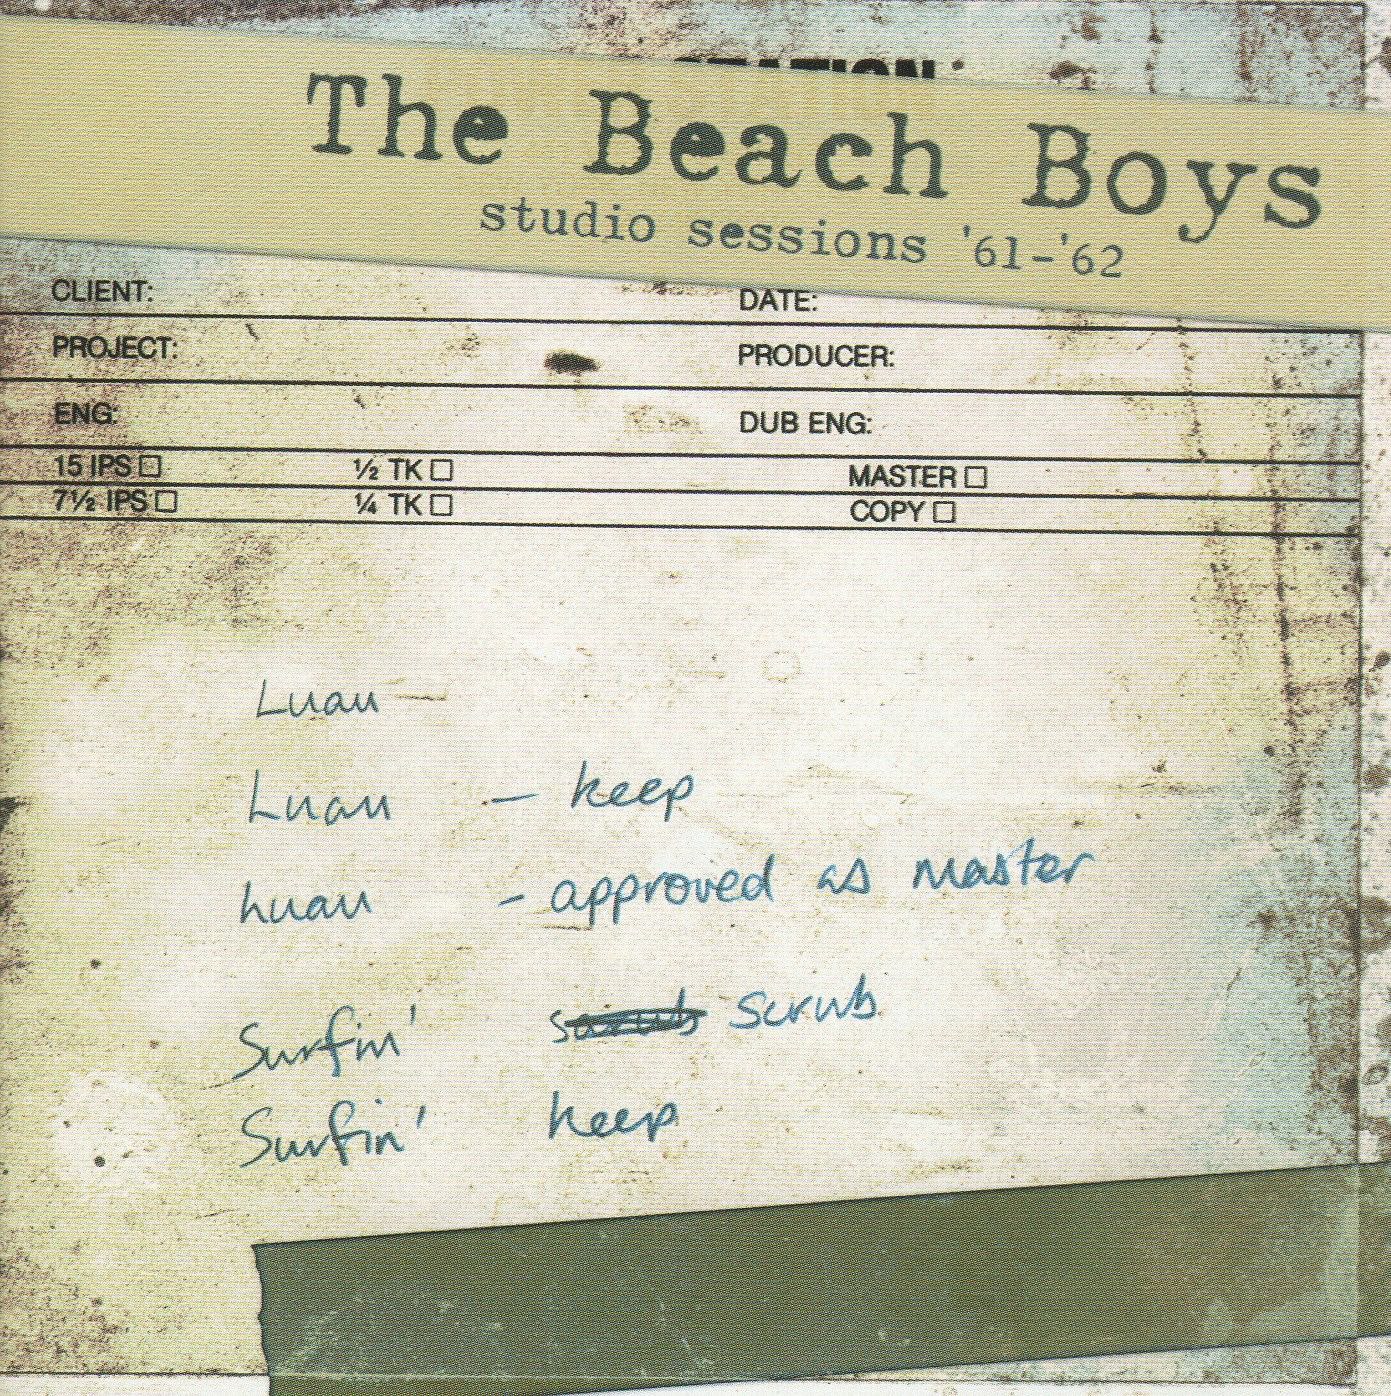 The Beach Boys
studio sessions '61-'62
CLIENT: DATE:
PROJECT: PRODUCER:
ENG: DUB ENG:
15 IPS ½ TK MASTER
7½ IPS ¼ TK COPY
Luau
Luau - keep
Luau - approved as Master
Surfin' Scrub
Surfin' keep